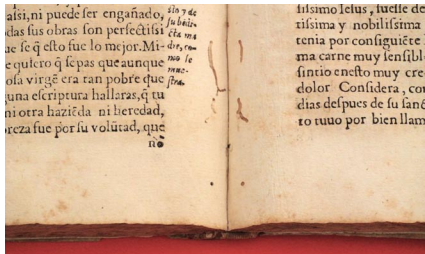 alsi, ni puede ser engañado,
das sus obras son perfectissi
ue se q̃ esto fue lo mejor. Mi-
e quiero q̃ sepas que aunque
osa virgẽ era tan pobre que
guna escriptura hallaras, q̃ tu
ni otra haziẽda ni heredad,
breza fue por su volũtad, que
nõ
sio y de
su bẽdi-
cta ma
dre, co-
mo se
mue-
stra.
lissimo Iesus, fuesse d
tissima y nobilissima
tenia por consiguiẽte l
ma carne muy sensibl
sintio en esto muy cre
dolor Considera, con
dias despues de su sanc
to tuuo por bien llam